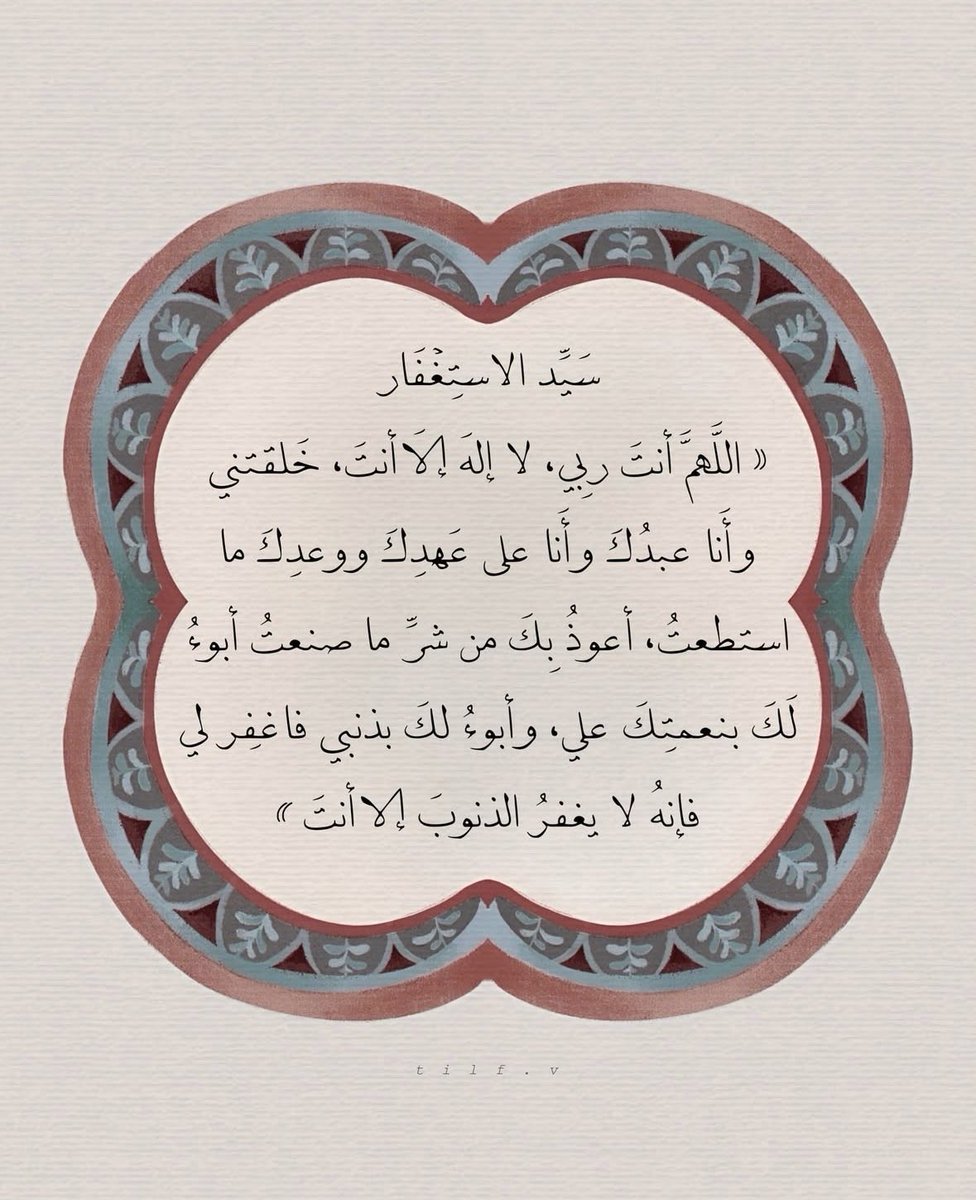 سَيِّد الاستِغْفَار
« اللَّهمَّ أنتَ ربِي، لا إلهَ إلَا أنتَ، خَلقتني
وأَنا عبدُكَ وأَنا على عَهدِكَ ووعدِكَ ما
استطعتُ، أعوذُ بِكَ من شرِّ ما صنعتُ أبوءُ
لَكَ بنعمتِكَ علي، وأبوءُ لكَ بذنبي فاغفِر لي
فإنهُ لا يغفرُ الذنوبَ إلا أنتَ »
tilf.v